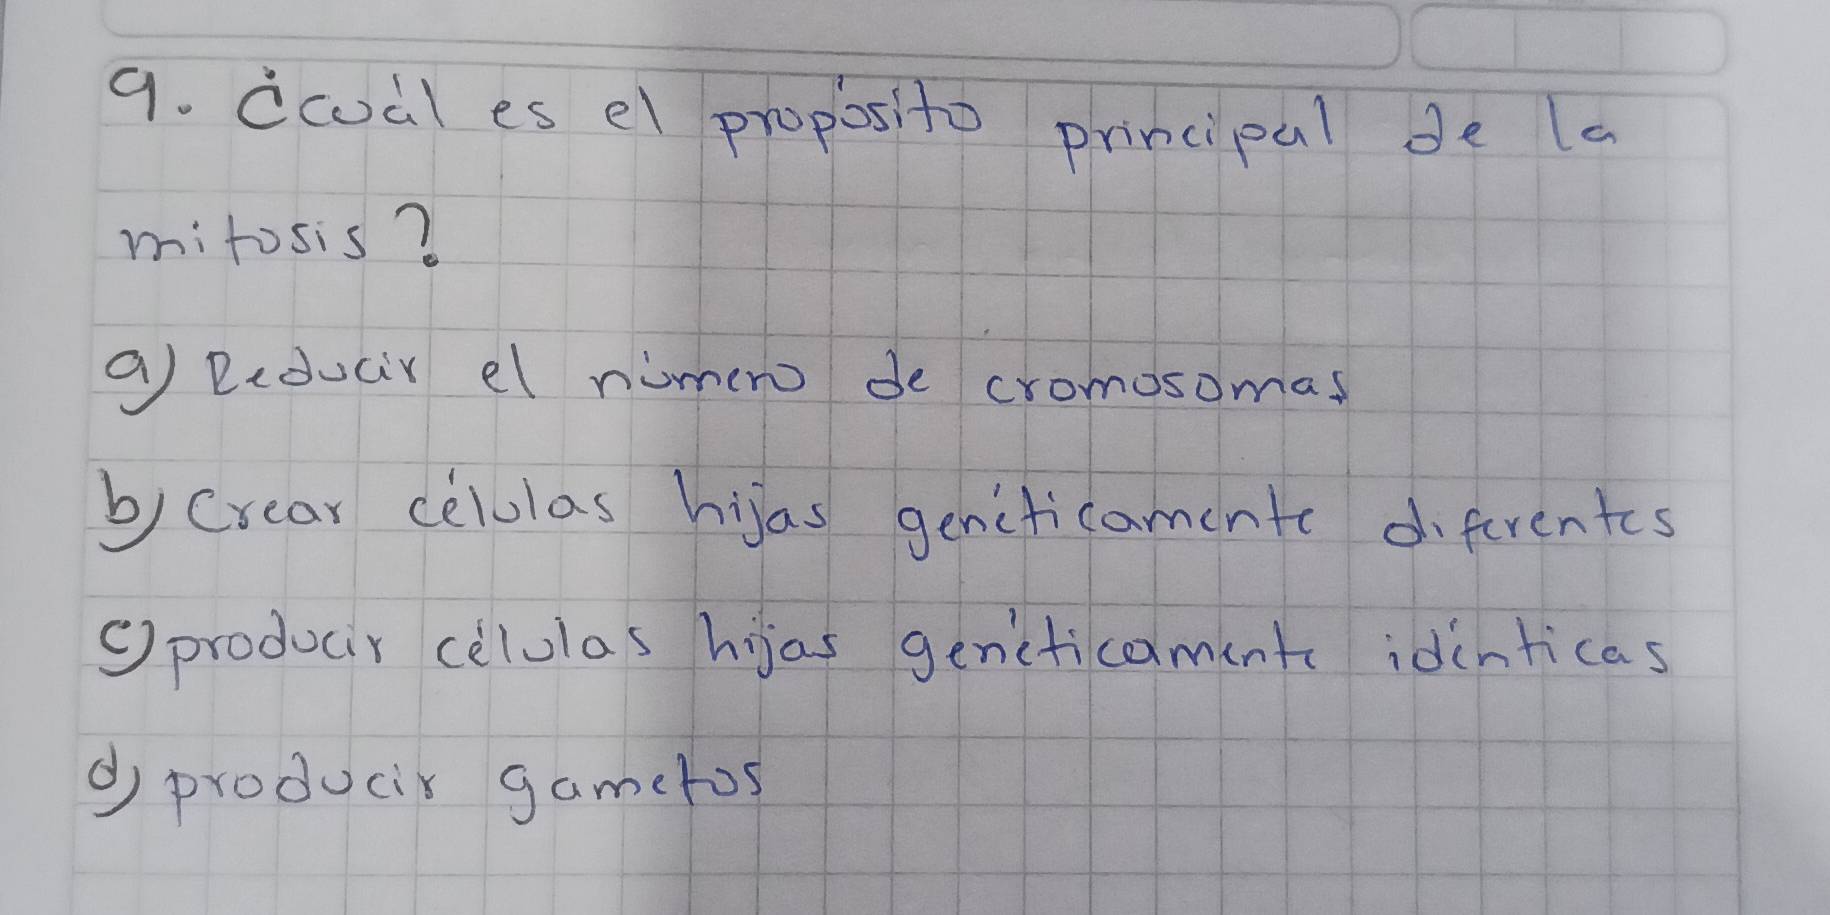 9. ¿cuál es el propósito principal de la
mitosis?
a) Reducir el número de cromosomas
b) Crear células hijas genéticamente diferentes
c) producir células hijas genéticamente idénticas
d) producir gametos